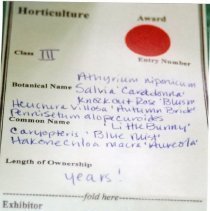 Horticulture
Award
Class III
Entry Number
Athyrium niponicum
Botanical Name Salvia 'Caradonna'
Knockout Rose 'Blush'
Heuchera Villosa 'Autumn Bride'
Pennisetum alopecuroides
Common Name 'Little Bunny'
Caryopteris 'Blue Mist'
Hakonechloa macra 'Aureola'
Length of Ownership
years!
fold here
Exhibitor